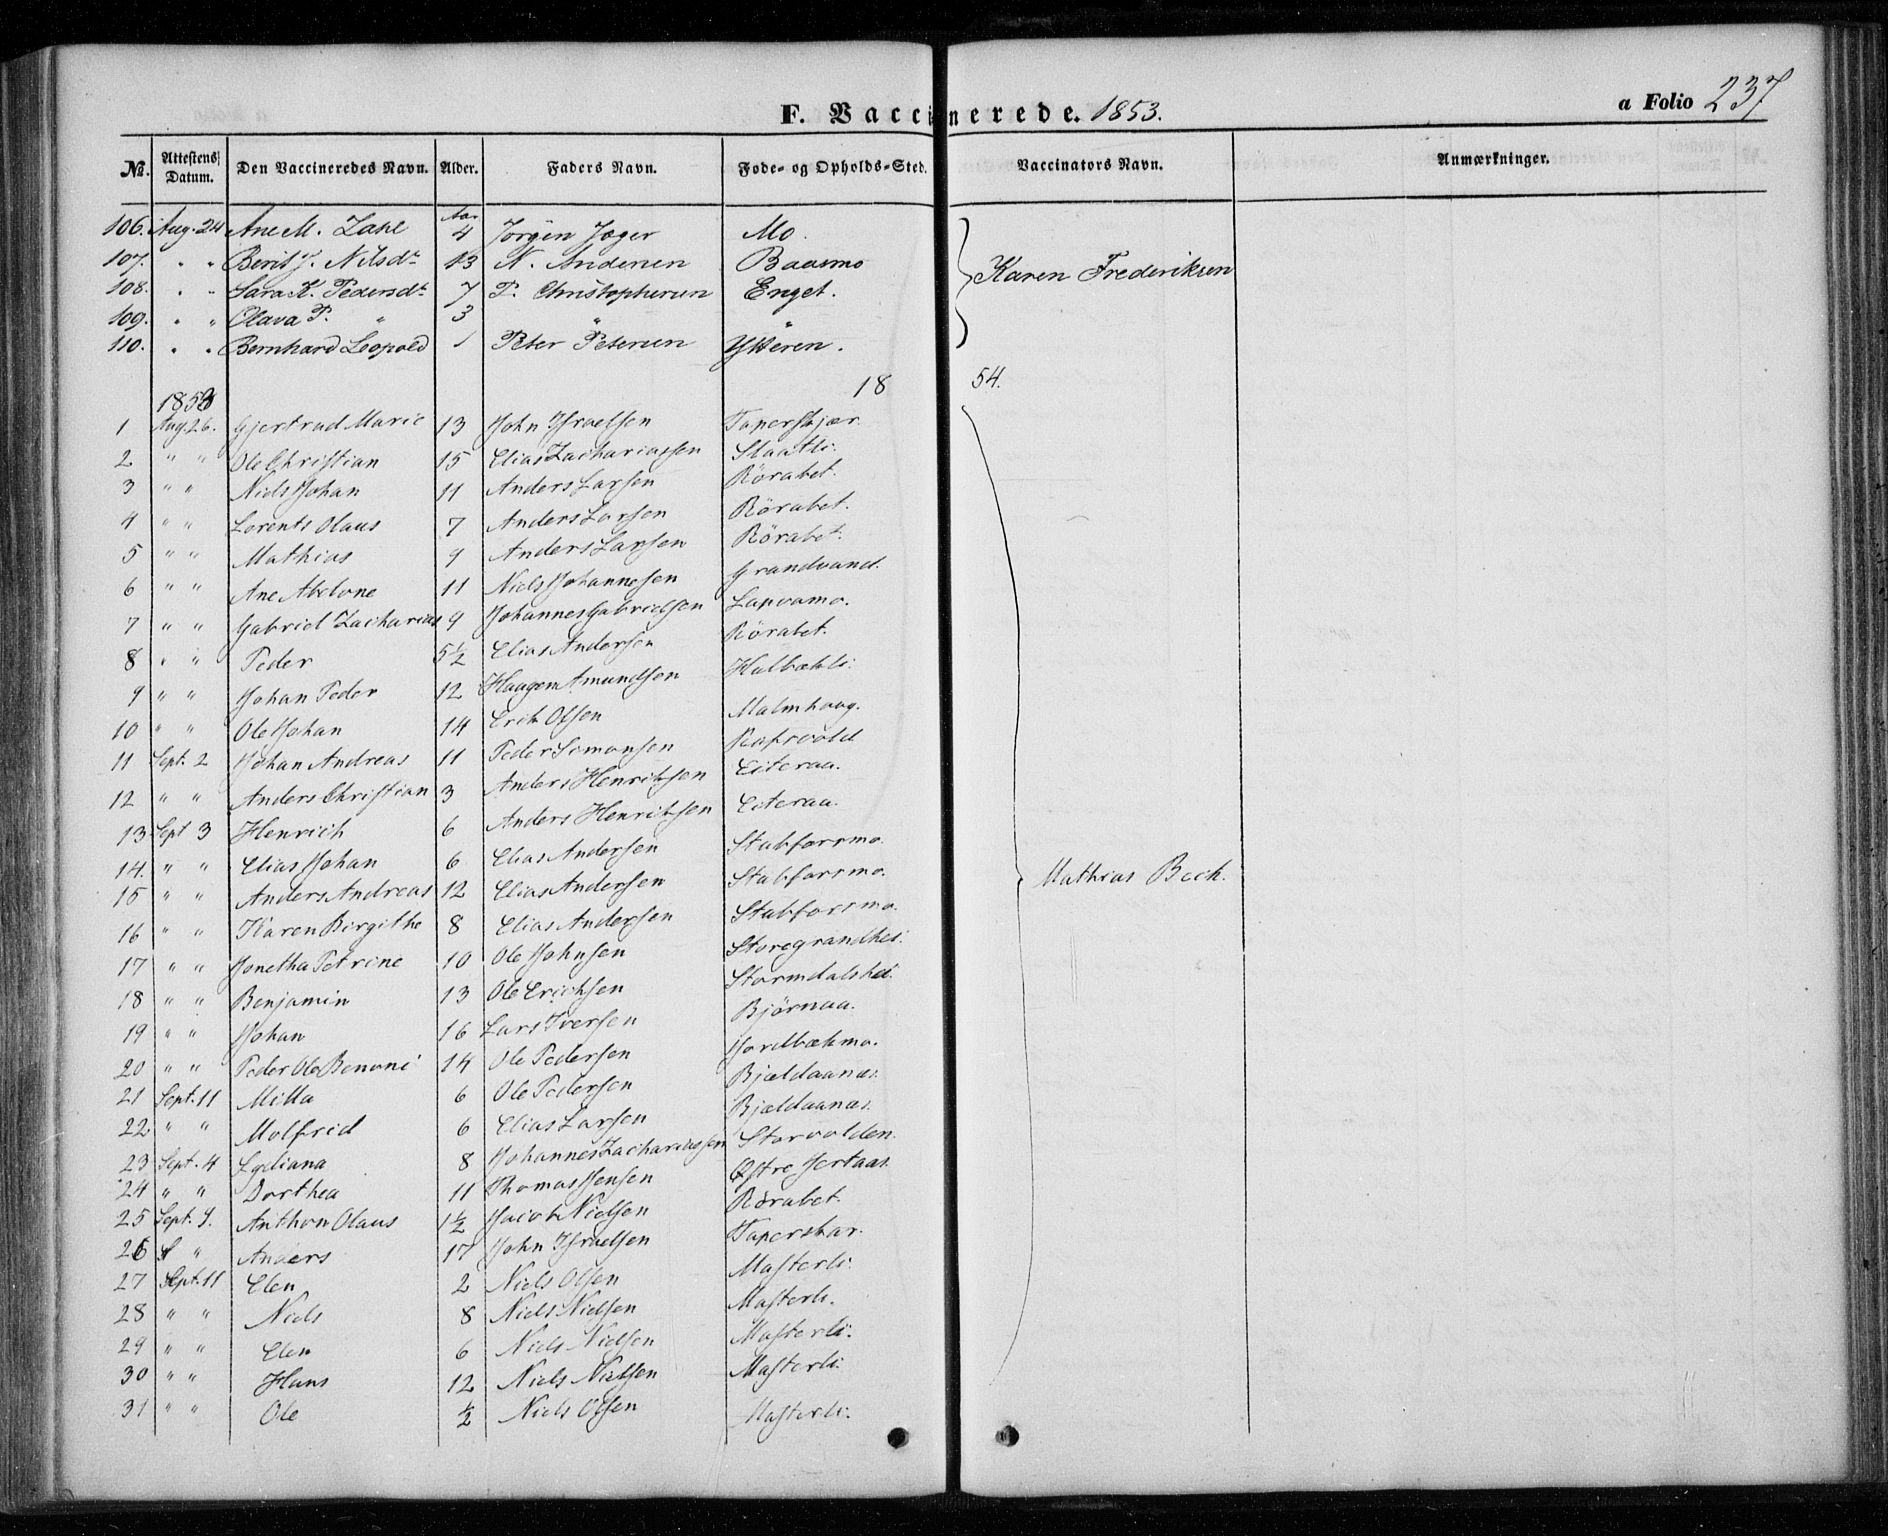 F. Vaccinerede. 1853. a Folio 237
No. Attestens Datum. Den Vaccineredes Navn. Alder. Faders Navn. Føde- og Opholds-Sted. Vaccinators Navn. Anmærkninger.
106. Aug. 24 Ane M. Aar 4 Jörgen Jæger Mo.
107. " " Berit J. Nilsdr 13 N. Andersen Baasmo
Karen Frederiksen
108. " " Sara K. Pedersdr 7 P. Christophersen Enget.
109. " " Olava P. " 3 " "
110. " " Bernhard Leopold 1 Peter Petersen Ytteren.
1854.
1853
1 Aug. 26. Gjertrud Marie 13 John Israelsen Taperskjær
2 " " Ole Christian 15 Elias Zachariassen Slaatli.
3 " " Niels Johan 11 Anders Larsen Rörabet.
4 " " Lorents Olaus 7 Anders Larsen Rörabet.
5 " " Mathias 9 Anders Larsen Rörabet.
6 " " Ane Abelone 11 Niels Johannesen Grandvand.
7 " " Gabriel Zacharias 9 Johannes Gabrielsen
8 " " Peder 5½ Elias Andersen Rörabet.
9 " " Johan Peder 12 Haagen Amundsen
10 " " Ole Johan 14 Erik Olsen Malmhaug.
11 Sept. 2 Johan Andreas 11 Peder Simonsen
12 " " Anders Christian 3 Anders Henriksen Eiteraa.
13 Sept 3 Henrich 6 Anders Henriksen Eiteraa.
14. " " Elias Johan 6 Elias Andersen Stabforsmo.
15 " " Anders Andreas 12 Elias Andersen Stabforsmo.
Mathias Bech.
16 " " Karen Birgithe 8 Elias Andersen Stabforsmo.
17 " " Jonetha Petrine 10 Ole Johnsen Storegrandhei.
18 " " Benjamin 13 Ole Erichsen
19 " " Johan 16 Lars Iversen Bjørnaa.
20 " " Peder Ole Benoni 14 Ole Pedersen Jordbækmo.
21 Sept. 11 Milla 6 Ole Pedersen Bjældaanæs.
22 " " Molfrid 6 Elias Larsen Bjældaanæs.
23 Sept. 4 Lydiana 8 Johannes Zachariassen Storvolden.
24 " " Dorthea 11 Thomas Jensen Østre Hertaas.
25 Sept. 9. Anthon Olaus 1½ Jacob Nielsen Rörabet.
26 " Anders 17 John Israelsen Taperskar.
27 Sept. 11 Elen 2 Niels Olsen Masterli.
28 " " Niels 8 Niels Nielsen Masterli.
29 " " Elen 6 Niels Nielsen Masterli.
30 " " Hans 12 Niels Nielsen Masterli.
31 " " Ole ½ Niels Olsen Masterli.